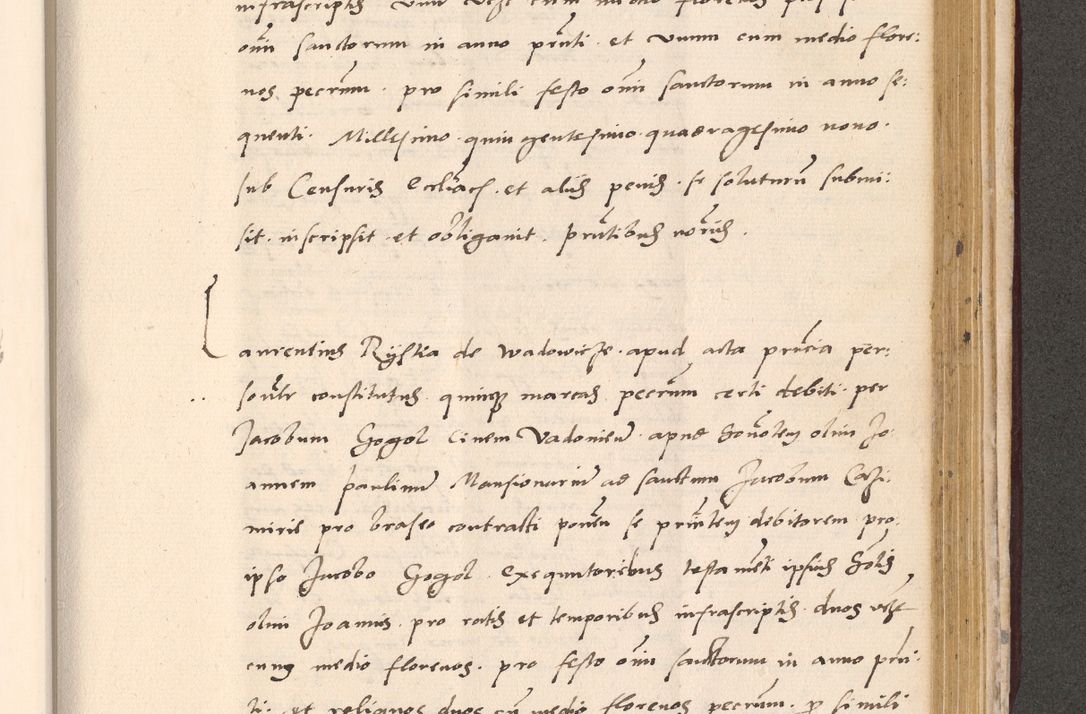 infrascriptis vnu vcze cum medio florenos
oīm sanctorum in anno pn̄ti · et vnum cum medio flore:
nos pecc̄ntm · pro simili festo oīm sanctorum in anno se:
quenti · Millesimo · quingentesimo · quadragesimo nono ·
sub Censuris eccl̄iacs · et aliis penis · se soluturū submi:
sit · inscripsit · et obligauit · pn̄tibus nōriis ·
Laurentius Ryſtia de wadowicze · apud acta pn̄cia per:
sōnlr constitutus · quinqȝ marcas pecc̄nm certi debiti · per
Jacobum Gogol Ciuem Vadouien̄ · apud honōlem olim Jo:
annem paulinū Mansionariū ad sanctum Jacobum Cazi:
mirie pro braseo contracti ponēn se prn̄tem debitorem pro:
ipso Jacobo Gogol · exequutoribus testamēti ipsius hōlis
olim Joannis · pro ratis et temporibus infrascriptis · duos vcze
cum medio florenos · pro festo oīm sanctorum in anno pn̄:
ti · et reliquos duos cū medio florenos pecc̄nm · p simili